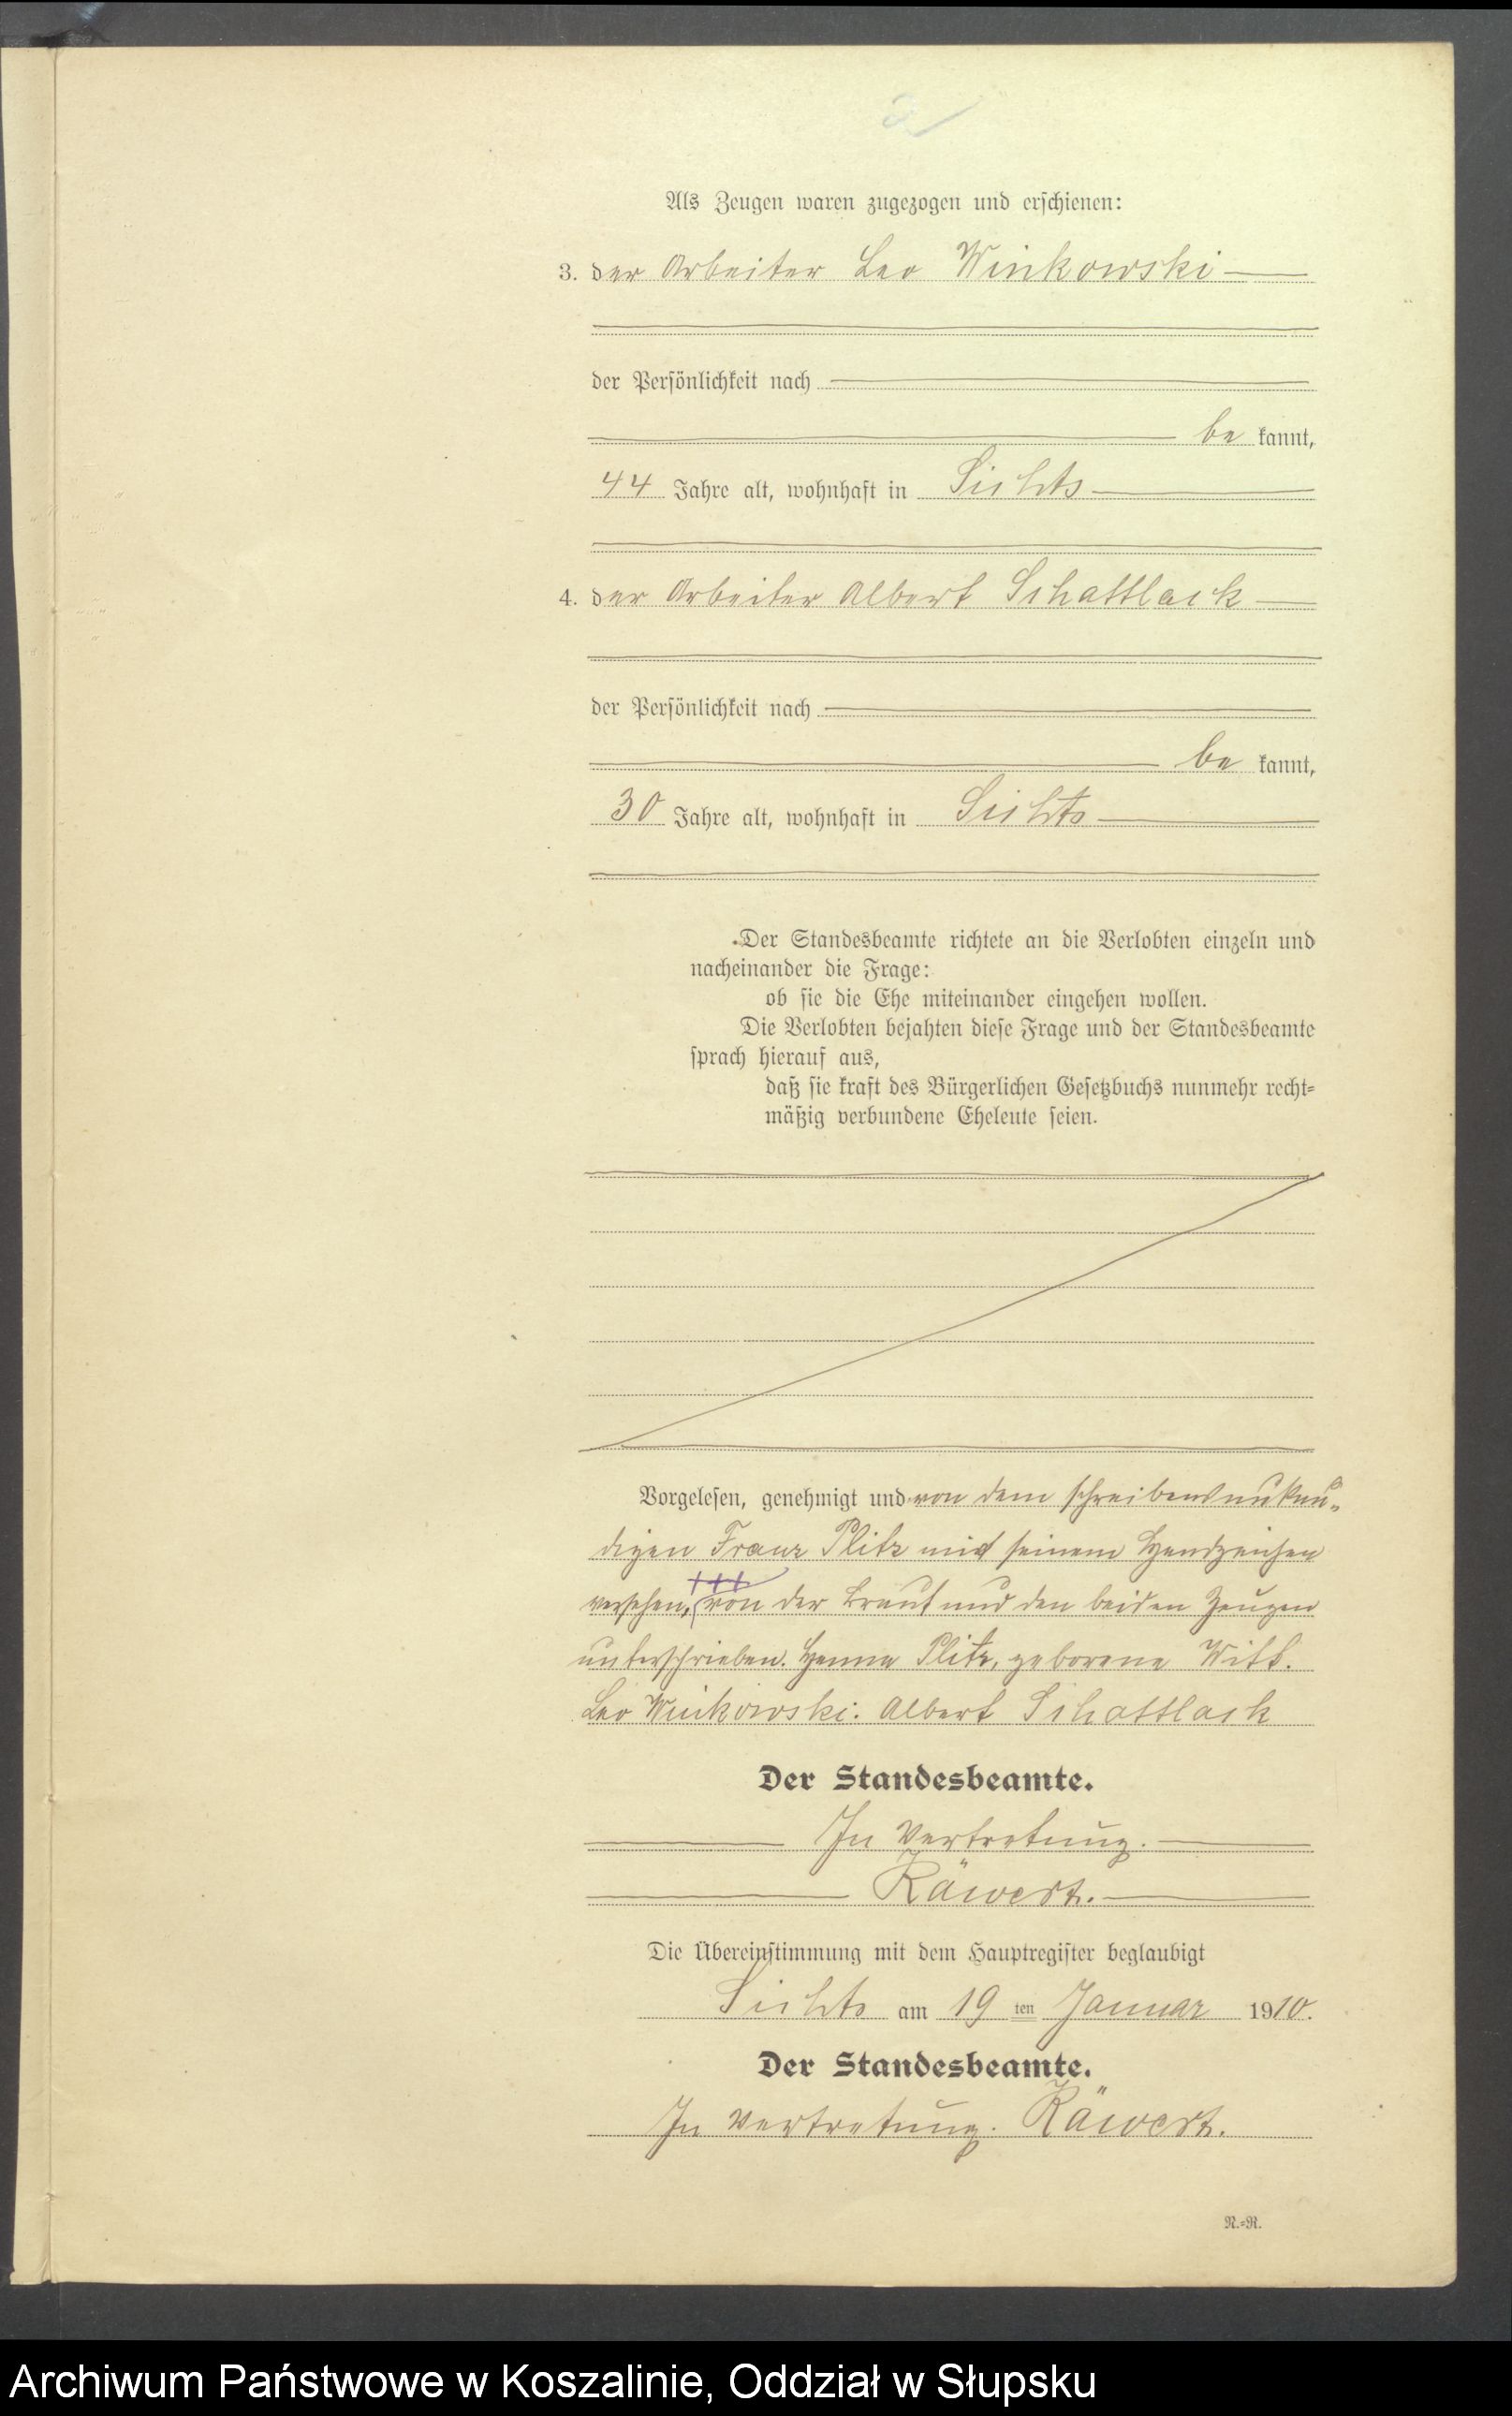 2
Als Zeugen waren zugezogen und erschienen:
3. der Arbeiter Leo Winkowski
der Persönlichkeit nach
be kannt,
44 Jahre alt, wohnhaft in Sichts
4. der Arbeiter Albert Schattlack
der Persönlichkeit nach
be kannt,
30 Jahre alt, wohnhaft in Sichts
Der Standesbeamte richtete an die Verlobten einzeln und
nacheinander die Frage:
ob sie die Ehe miteinander eingehen wollen.
Die Verlobten bejahten diese Frage und der Standesbeamte
sprach hierauf aus,
daß sie kraft des Bürgerlichen Gesetzbuchs nunmehr recht=
mäßig verbundene Eheleute seien.
Vorgelesen, genehmigt und von dem schreibensunkun=
digen Franz Plitz mit seinem Handzeichen
versehen, +++ von der Braut und den beiden Zeugen
unterschrieben. Hanna Plitz, geborene Witt.
Leo Winkowski. Albert Schattlack
Der Standesbeamte.
In Vertretung.
Räwert.
Die Übereinstimmung mit dem Hauptregister beglaubigt
Sichts am 19 ten Januar 1910.
Der Standesbeamte.
In Vertretung. Räwert.
N.=R.
Archiwum Państwowe w Koszalinie, Oddział w Słupsku